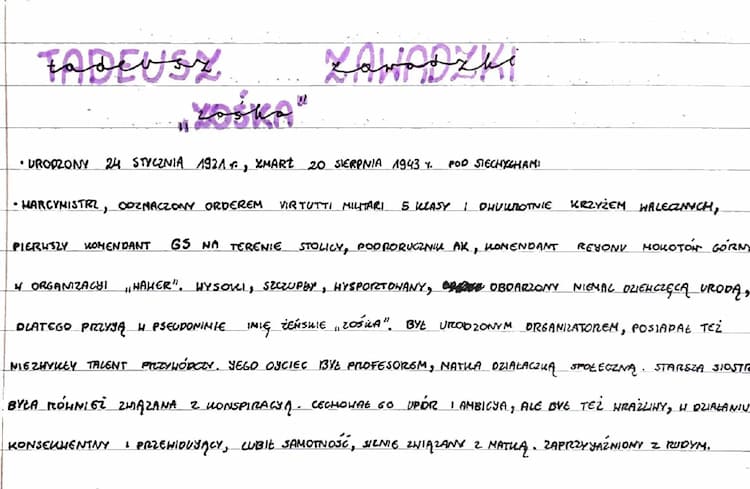 TADEUSZ ZAWADZKI
„ZOŚKA"
• URODZONY 24 STYCZNIA 1921 r., ZMARŁ 20 SIERPNIA 1943 r. POD SIECHYCHAMI
• HARCMISTRZ, ODZNACZONY ORDEREM VIRTUTTI MILITARI 5 KLASY I DWUKROTNIE KRZYŻEM WALECZNYCH,
PIERWSZY KOMENDANT GS NA TERENIE STOLICY, PODPORUCZNIK AK, KOMENDANT REJONU MOKOTÓW GÓRNY
W ORGANIZACJI „WAWER". WYSOKI, SZCZUPŁY, WYSPORTOWANY, OBDARZONY NIEMAL DZIEWCZĘCĄ URODĄ,
DLATEGO PRZYJĄ W PSEUDONIMIE IMIĘ ŻEŃSKIE „ZOŚKA". BYŁ URODZONYM ORGANIZATOREM, POSIADAŁ TEŻ
NIEZWYKŁY TALENT PRZYWÓDCZY. JEGO OJCIEC BYŁ PROFESOREM, MATKA DZIAŁACZKĄ SPOŁECZNĄ. STARSZA SIOSTRA
BYŁA RÓWNIEŻ ZWIĄZANA Z KONSPIRACJĄ. CECHOWAŁ GO UPÓR I AMBICJA, ALE BYŁ TEŻ WRAŻLIWY, W DZIAŁANIU
KONSEKWENTNY I PRZEWIDUJĄCY, LUBIŁ SAMOTNOŚĆ, SILNIE ZWIĄZANY Z MATKĄ. ZAPRZYJAŹNIONY Z RUDYM.